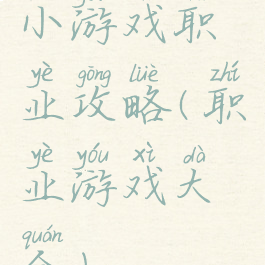 小游戏职
yè gōng lüè zhí
业攻略(职
yè yóu xì dà
业游戏大
quán
全)